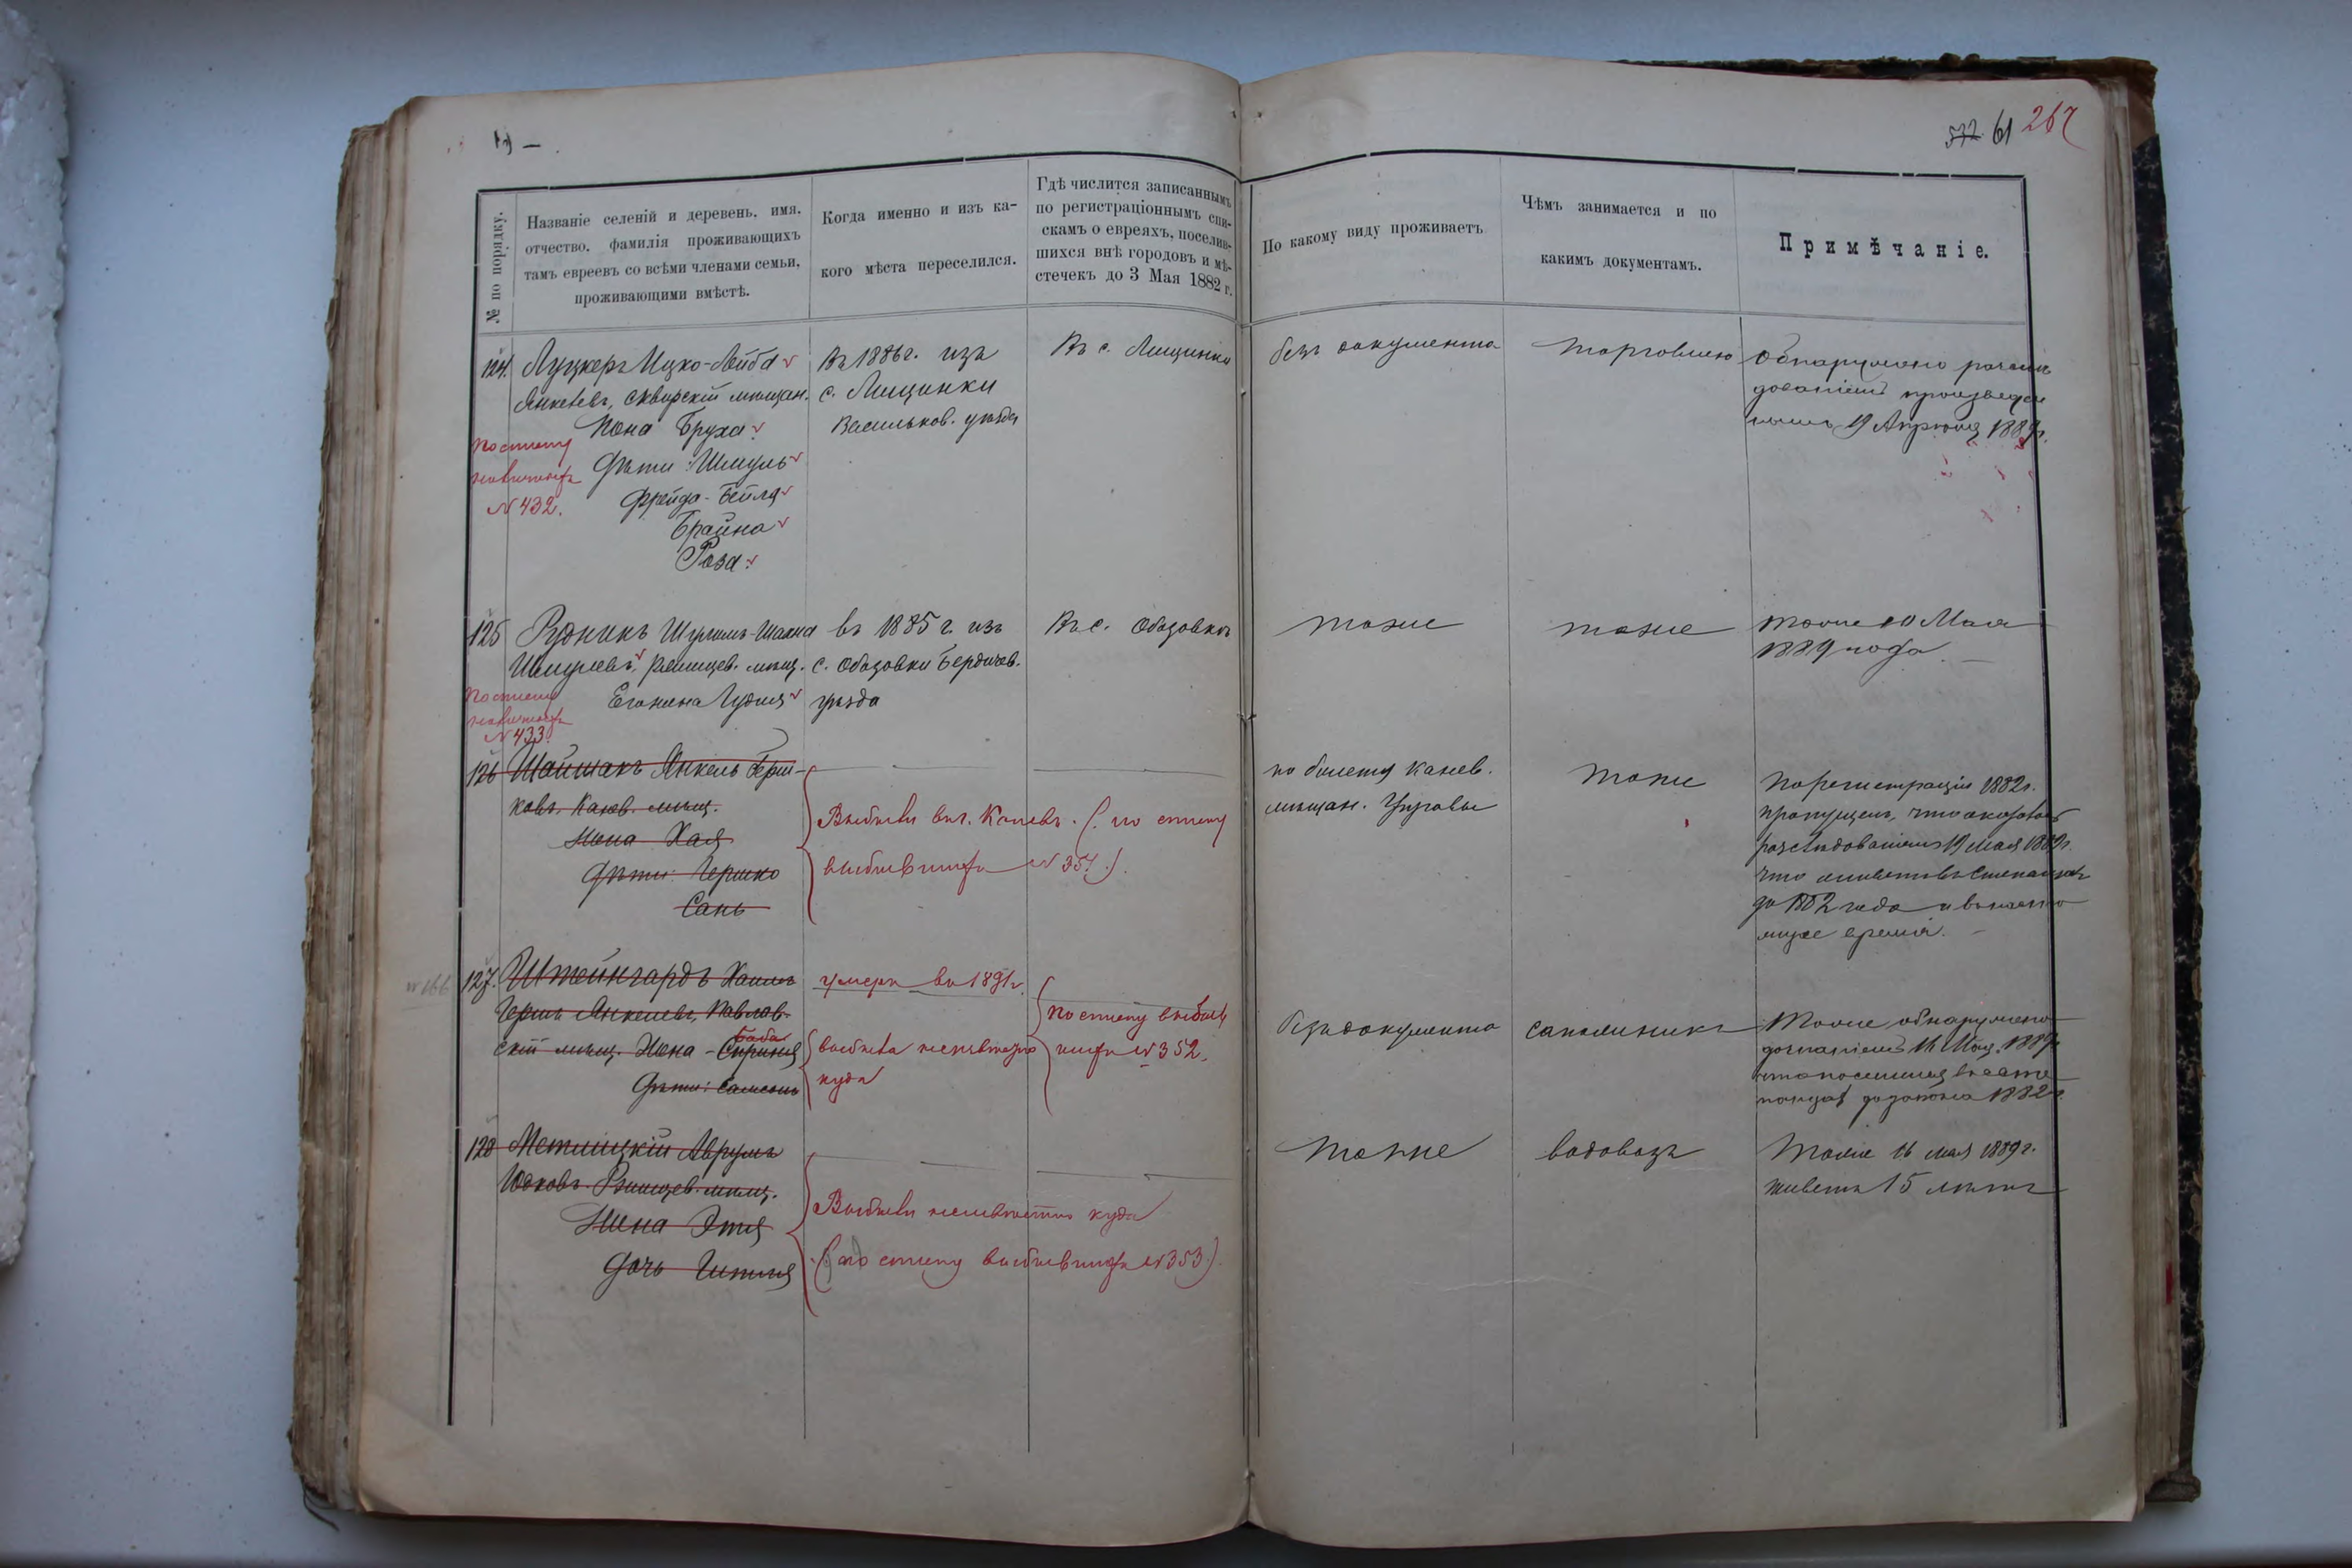 572 61 267
№ по порядку.
Названіе селеній и деревень, имя,
отчество, фамилія проживающихъ
тамъ евреевъ со всѣми членами семьи,
проживающими вмѣстѣ.
Когда именно и изъ ка-
кого мѣста переселился.
Гдѣ числится записаннымъ
по регистраціоннымъ спи-
скамъ о евреяхъ, поселив-
шихся внѣ городовъ и мѣ-
стечекъ до 3 Мая 1882 г.
По какому виду проживаетъ
Чѣмъ занимается и по
какимъ документамъ.
Примѣчаніе.
124. Луцкеръ Ицко-Лейба
Янкелевъ, Сквирскій мѣщан.
Жена Бруха
Дѣти: Шмуль
Фрейда-Бейля
Брайна
Роза
По списку
№ 432.
Въ 1886 г. изъ
с. Лищинки
Васильков. уѣзда
Въ с. Лищинки
безъ документа
торговлею
Обнаружено разслѣ
дованіемъ произведен
нымъ 19 Апрѣля 1889 г.
125 Рудникъ Шулимъ-Шахна
Шмулевъ, мѣщ.
Его жена Гудля
По списку
№ 433.
въ 1885 г. изъ
с. Обозовки Бердичев.
уѣзда
Въ с. Обозовкѣ
тоже
тоже
тоже 10 Мая
1889 года
126 Шаймакъ Янкель Герш-
ковъ. Канев. мѣщ.
Жена Хая
Дѣти: Гершко
Сань
Выбыли въ г. Каневъ. (по списку
выбывшихъ № 357.)
по билету Канев.
мѣщан. Управы
тоже
По регистраціи 1882 г.
пропущенъ, что
разслѣдованіемъ 19 Мая 1889 г.
что живетъ въ
до 1882 года и въ
время.
№ 166
127. Штейнгардъ Хаимъ
Гершъ Янкелевъ,
скій мѣщ. Жена - Сприня
Баба
Дѣти: Самсонъ
умеръ въ 1891 г.
выбыла неизвѣстно
куда
По списку выбыв
шихъ № 352.
безъ документа
Тоже обнаружено
дознаніемъ 16 Мая 1889
1882 г.
128 Метлицкій Аврумъ
Юдковъ. мѣщ.
Жена Этля
Дочь
Выбыли неизвѣстно куда
(по списку выбывшихъ № 353).
тоже
водовозъ
Тоже 16 мая 1889 г.
живетъ 15 лѣтъ